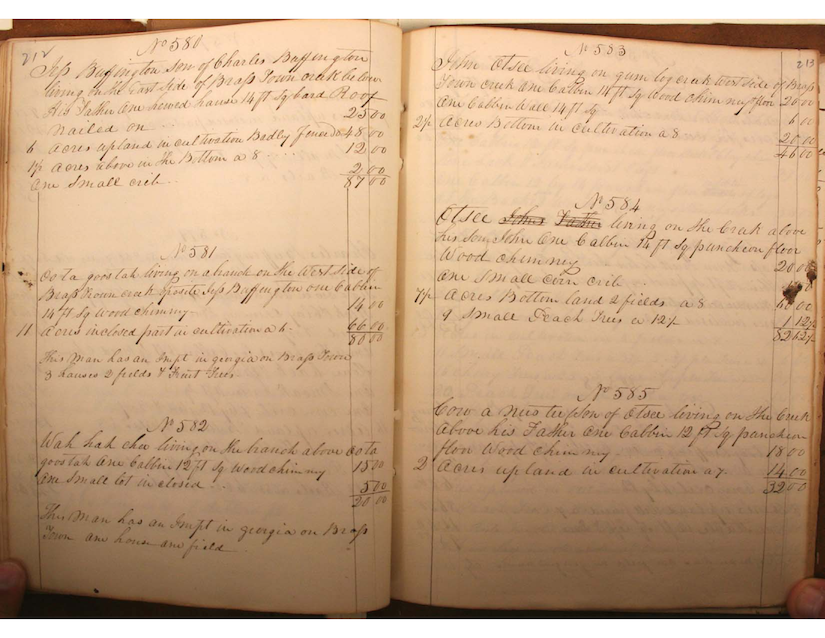 212
No 580
Jess Buffington son of Charles Buffington
living on the East side of Brass Town creek below
His Father One hewed house 14 ft Sq board Roof
nailed on 25 00
6 Acres upland in cultivation Badly fenced a 8 48 00
1½ Acres above in the Bottom a 8 12 00
One Small crib 2 00
87 00
No 581
Oo ta goos tah living on a branch on the West side of
Brass Town creek oposite Jess Buffington one Cabbin
14 ft Sq Wood chimny 14 00
11 Acres inclosed part in cultivation a 6 66 00
80 00
This Man has an Impt in georgia on Brass Town
3 houses 2 fields & Fruit Trees
No 582
Wah hah chu living on the branch above oo ta
goos tah One Cabbin 12 ft Sq Wood chimny 15 00
One Small lot in closed 5 00
20 00
This Man has an Impt in georgia on Brass
Town one house one field
213
No 583
John Otsee living on gum log creek West side of Brass
Town creek One Cabin 14 ft Sq Wood chimny & flor 20 00
One Cabbin Wall 14 ft Sq 6 00
2½ Acres Bottom in cultivation a 8 20 00
46 00
No 584
Otsee Johns Father living on the Creek above
his Son John One Cabbin 14 ft Sq puncheon floor
Wood chimny 20 00
One Small corn crib
7½ Acres Bottom land 2 fields a 8 60 00
9 Small Peach Trees a 12½ 1 12½
82 12½
No 585
Cow a nees tee Son of Otsee living on the Creek
Above his Father One Cabbin 12 ft Sq puncheon
flor Wood chimny 18 00
2 Acres upland in cultivation a 7 14 00
32 00